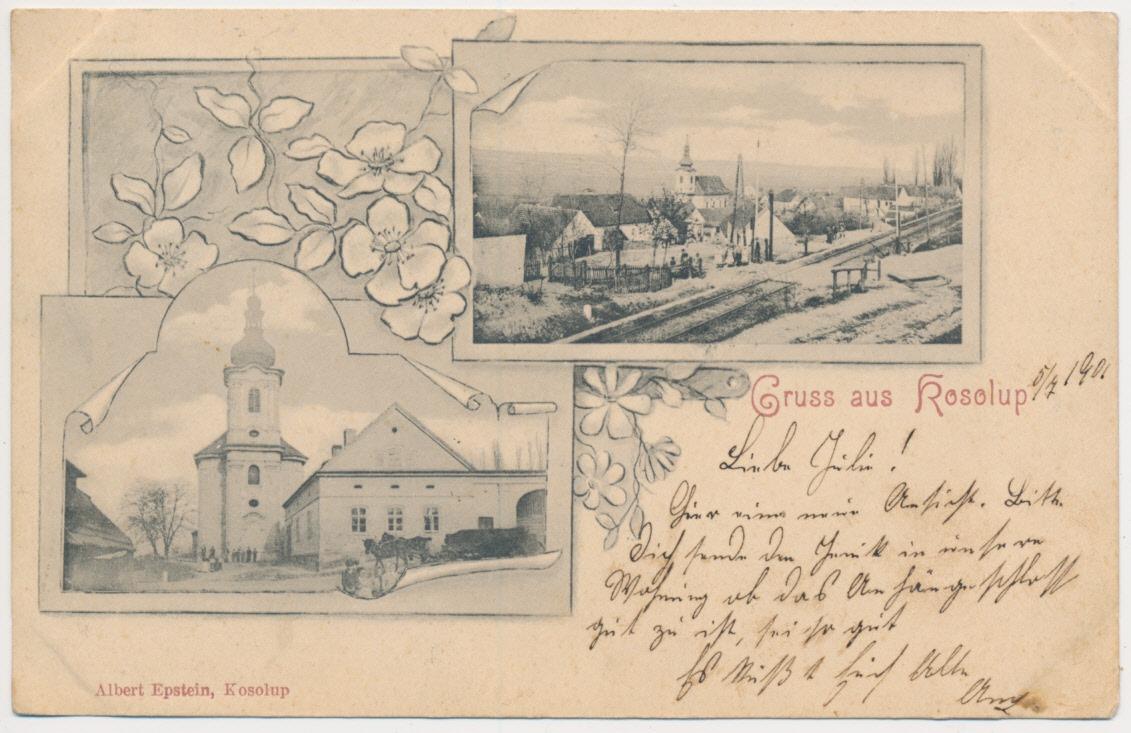 Gruss aus Kosolup
5/7 1901
Liebe Julie!
Hier eine neue Ansicht. Bitte
Dich sende den in unsere
Wohnung ob das Anhängeschloss
gut zu ist, sei so gut
Es küßt Euch Alle
Albert Epstein, Kosolup